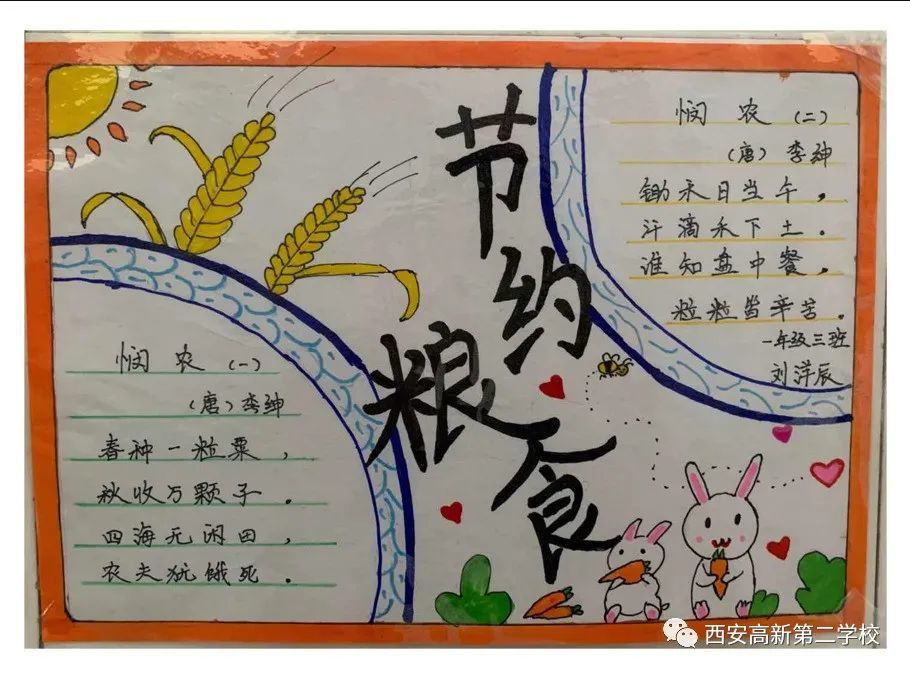 节约
粮食
悯农（二）
（唐）李绅
锄禾日当午，
汗滴禾下土。
谁知盘中餐，
粒粒皆辛苦。
一年级三班
刘洋辰
悯农（一）
（唐）李绅
春种一粒粟，
秋收万颗子。
四海无闲田，
农夫犹饿死。
西安高新第二学校